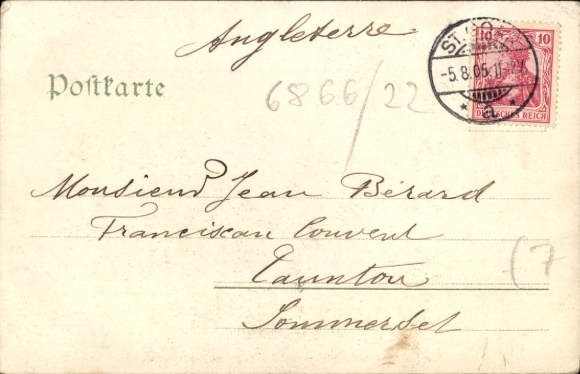 Angleterre
Postkarte
6866/22
10 10
-5.8.05.11-12V
* a *
DEUTSCHES REICH
Monsieur Jean Bérard
Franciscan Convent
Taunton
(7
Sommerset